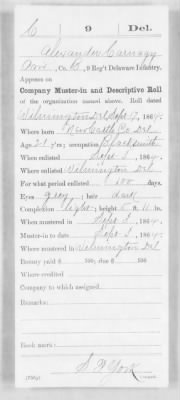 C 9 Del.
Alexander Carnagy
Co. B, 9 Reg't Delaware Infantry.
Appears on
Company Muster-in and Descriptive Roll
of the organization named above. Roll dated
Wilmington Del Sept 17, 1864.
Where born New Castle Co Del
Age 21 y'rs; occupation Blacksmith
When enlisted Sept 3, 1864.
Where enlisted Wilmington Del
For what period enlisted 100 days
Eyes grey; hair dark
Complexion light; height 5 ft. 11 in.
When mustered in Sept 3, 1864.
Muster-in to date Sept 3, 1864.
Where mustered in Wilmington Del
Bounty paid $ 100; due $ 100
Where credited
Company to which assigned
Remarks:
Book mark:
S. P. York
Copyist.